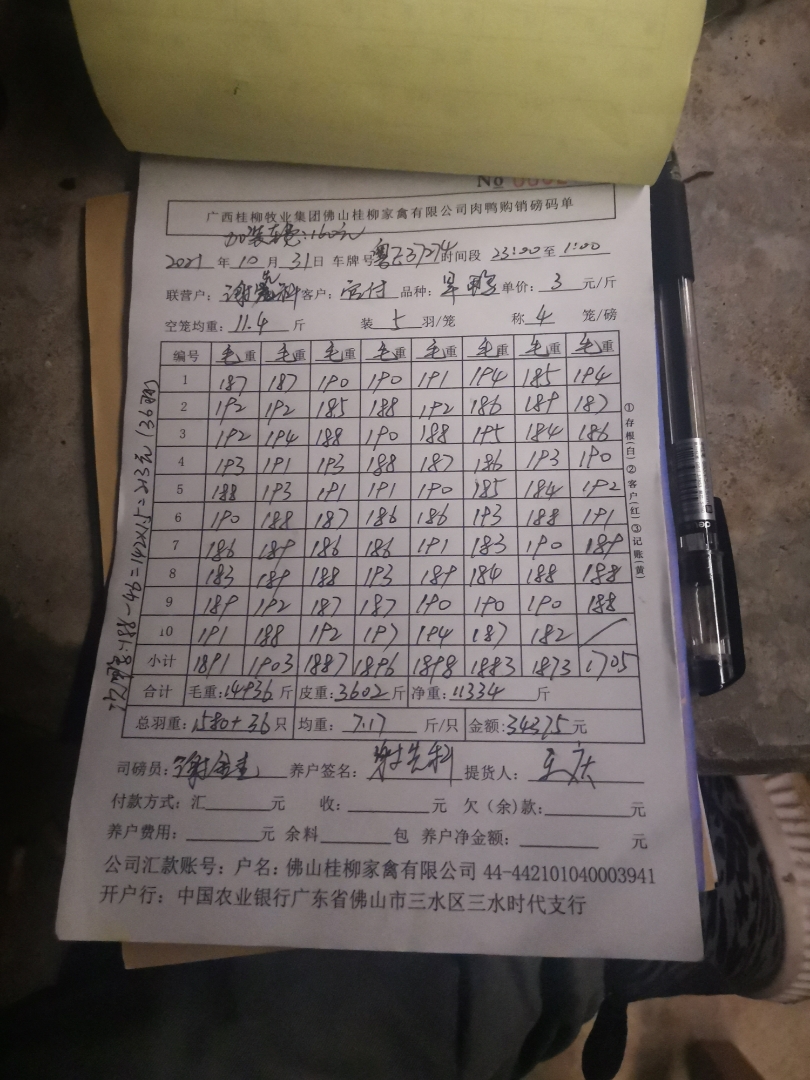 No
广西桂柳牧业集团佛山桂柳家禽有限公司肉鸭购销磅码单
加装车费:160元
2021年10月31日 车牌号 粤 37274 时间段 23:00至1:00
联营户: 谢 科 客户: 现付 品种: 旱鸭 单价: 3 元/斤
空笼均重: 11.4 斤 装 5 羽/笼 称 4 笼/磅
编号 毛重 毛重 毛重 毛重 毛重 毛重 毛重 毛重
1 187 187 190 190 191 194 185 194
2 192 192 185 188 192 186 189 187
3 192 194 188 190 188 195 184 186
4 193 191 193 188 187 186 193 190
5 188 193 191 191 190 185 184 192
6 190 188 187 186 186 193 188 191
7 186 189 186 186 191 183 190 189
8 183 189 188 193 189 184 188 188
9 189 192 187 187 190 190 190 188
10 191 188 192 197 194 187 182 /
小计 1891 1903 1887 1896 1898 1883 1873 1705
合计 毛重: 14936 斤 皮重: 3602 斤 净重: 11334 斤
总羽重: 1580+36 只 均重: 7.17 斤/只 金额: 34375 元
司磅员: 谢金 养户签名: 谢先科 提货人: 王庆
付款方式: 汇 元 收: 元 欠(余)款: 元
养户费用: 元 余料 包 养户净金额: 元
公司汇款账号: 户名: 佛山桂柳家禽有限公司 44-442101040003941
开户行: 中国农业银行广东省佛山市三水区三水时代支行
①存根(白)②客户(红)③记账(黄)
188-46=142×1.5=213元(36只)